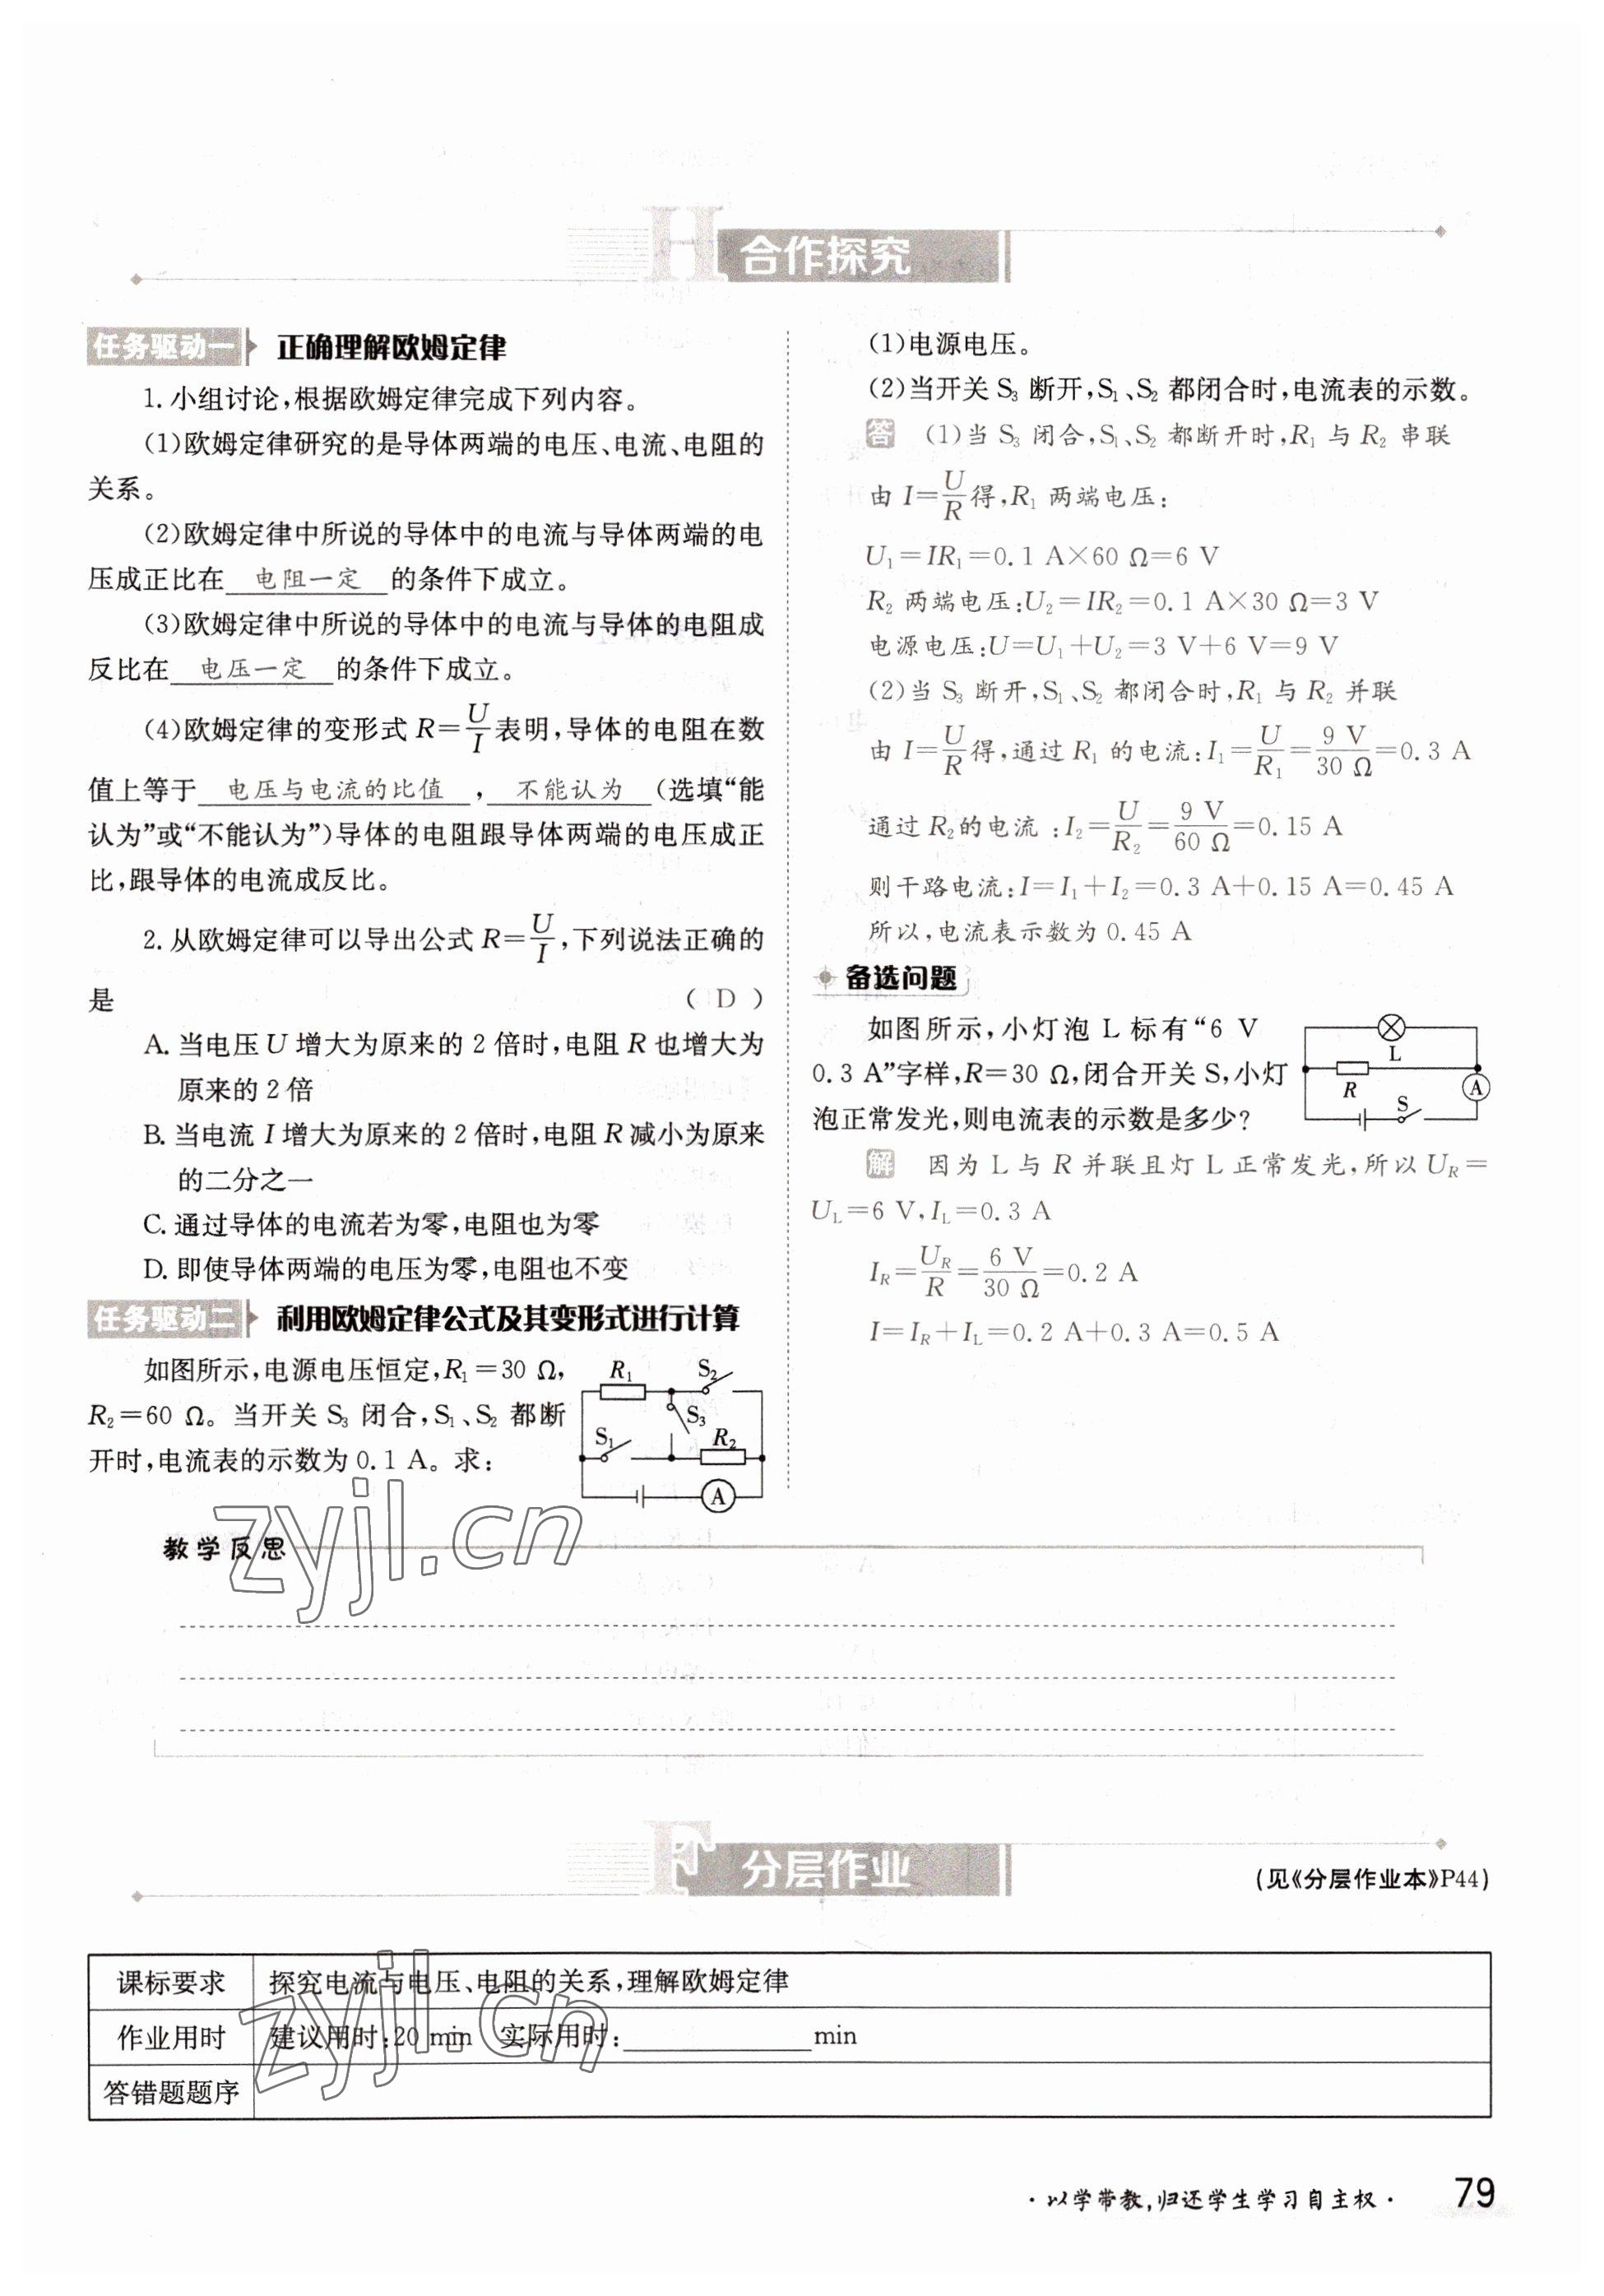 H 合作探究
任务驱动一 正确理解欧姆定律
1.小组讨论,根据欧姆定律完成下列内容。
(1)欧姆定律研究的是导体两端的电压、电流、电阻的
关系。
(2)欧姆定律中所说的导体中的电流与导体两端的电
压成正比在 电阻一定 的条件下成立。
(3)欧姆定律中所说的导体中的电流与导体的电阻成
反比在 电压一定 的条件下成立。
(4)欧姆定律的变形式 R=U/I表明,导体的电阻在数
值上等于 电压与电流的比值 , 不能认为 (选填“能
认为”或“不能认为”)导体的电阻跟导体两端的电压成正
比,跟导体的电流成反比。
2.从欧姆定律可以导出公式 R=U/I,下列说法正确的
是 ( D )
A. 当电压 U 增大为原来的 2 倍时,电阻 R 也增大为
原来的 2 倍
B. 当电流 I 增大为原来的 2 倍时,电阻 R 减小为原来
的二分之一
C. 通过导体的电流若为零,电阻也为零
D. 即使导体两端的电压为零,电阻也不变
任务驱动二 利用欧姆定律公式及其变形式进行计算
如图所示,电源电压恒定,R₁=30 Ω,
R₂=60 Ω。当开关 S₃ 闭合,S₁、S₂ 都断
开时,电流表的示数为 0.1 A。求:
R₁ S₂
S₃
S₁ R₂
A
(1)电源电压。
(2)当开关 S₃ 断开,S₁、S₂ 都闭合时,电流表的示数。
答 (1)当 S₃ 闭合,S₁、S₂ 都断开时,R₁ 与 R₂ 串联
由 I=U/R得,R₁ 两端电压:
U₁=IR₁=0.1 A×60 Ω=6 V
R₂ 两端电压:U₂=IR₂=0.1 A×30 Ω=3 V
电源电压:U=U₁+U₂=3 V+6 V=9 V
(2)当 S₃ 断开,S₁、S₂ 都闭合时,R₁ 与 R₂ 并联
由 I=U/R得,通过 R₁ 的电流:I₁=U/R₁=9 V/30 Ω=0.3 A
通过 R₂的电流 :I₂=U/R₂=9 V/60 Ω=0.15 A
则干路电流:I=I₁+I₂=0.3 A+0.15 A=0.45 A
所以,电流表示数为 0.45 A
备选问题
如图所示,小灯泡 L 标有“6 V
0.3 A”字样,R=30 Ω,闭合开关 S,小灯
泡正常发光,则电流表的示数是多少?
L
R A
S
解 因为 L 与 R 并联且灯 L 正常发光,所以 U_R=
U_L=6 V,I_L=0.3 A
I_R=U_R/R=6 V/30 Ω=0.2 A
I=I_R+I_L=0.2 A+0.3 A=0.5 A
教学反思
zyjl.cn
F 分层作业
(见《分层作业本》P44)
课标要求 探究电流与电压、电阻的关系,理解欧姆定律
作业用时 建议用时:20 min 实际用时: min
答错题题序
zyjl.cn
·以学带教,归还学生学习自主权· 79